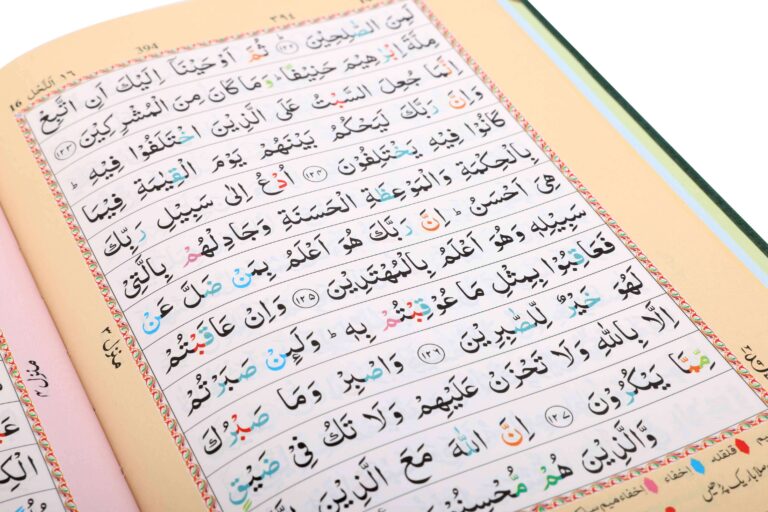 ٣٩٤
394
النحل ١٦
16
لَمِنَ الصّٰلِحِيْنَ ﴿١٢٢﴾ ثُمَّ اَوْحَيْنَاۤ اِلَيْكَ اَنِ اتَّبِعْ
مِلَّةَ اِبْرٰهِيْمَ حَنِيْفًا ؕ وَمَا كَانَ مِنَ الْمُشْرِكِيْنَ ﴿١٢٣﴾
اِنَّمَا جُعِلَ السَّبْتُ عَلَى الَّذِيْنَ اخْتَلَفُوْا فِيْهِ ؕ
وَاِنَّ رَبَّكَ لَيَحْكُمُ بَيْنَهُمْ يَوْمَ الْقِيٰمَةِ فِيْمَا
كَانُوْا فِيْهِ يَخْتَلِفُوْنَ ﴿١٢٤﴾ اُدْعُ اِلٰى سَبِيْلِ رَبِّكَ
بِالْحِكْمَةِ وَالْمَوْعِظَةِ الْحَسَنَةِ وَجَادِلْهُمْ بِالَّتِيْ
هِيَ اَحْسَنُ ؕ اِنَّ رَبَّكَ هُوَ اَعْلَمُ بِمَنْ ضَلَّ عَنْ
سَبِيْلِهٖ وَهُوَ اَعْلَمُ بِالْمُهْتَدِيْنَ ﴿١٢٥﴾ وَاِنْ عَاقَبْتُمْ
فَعَاقِبُوْا بِمِثْلِ مَا عُوْقِبْتُمْ بِهٖ ؕ وَلَئِنْ صَبَرْتُمْ
لَهُوَ خَيْرٌ لِّلصّٰبِرِيْنَ ﴿١٢٦﴾ وَاصْبِرْ وَمَا صَبْرُكَ
اِلَّا بِاللّٰهِ وَلَا تَحْزَنْ عَلَيْهِمْ وَلَا تَكُ فِيْ ضَيْقٍ
مِّمَّا يَمْكُرُوْنَ ﴿١٢٧﴾ اِنَّ اللّٰهَ مَعَ الَّذِيْنَ
وَّالَّذِيْنَ هُمْ مُّحْسِنُوْنَ
منزل ٣
منزل ٣
قلقله
اخفاء
اخفاء میم ساکن